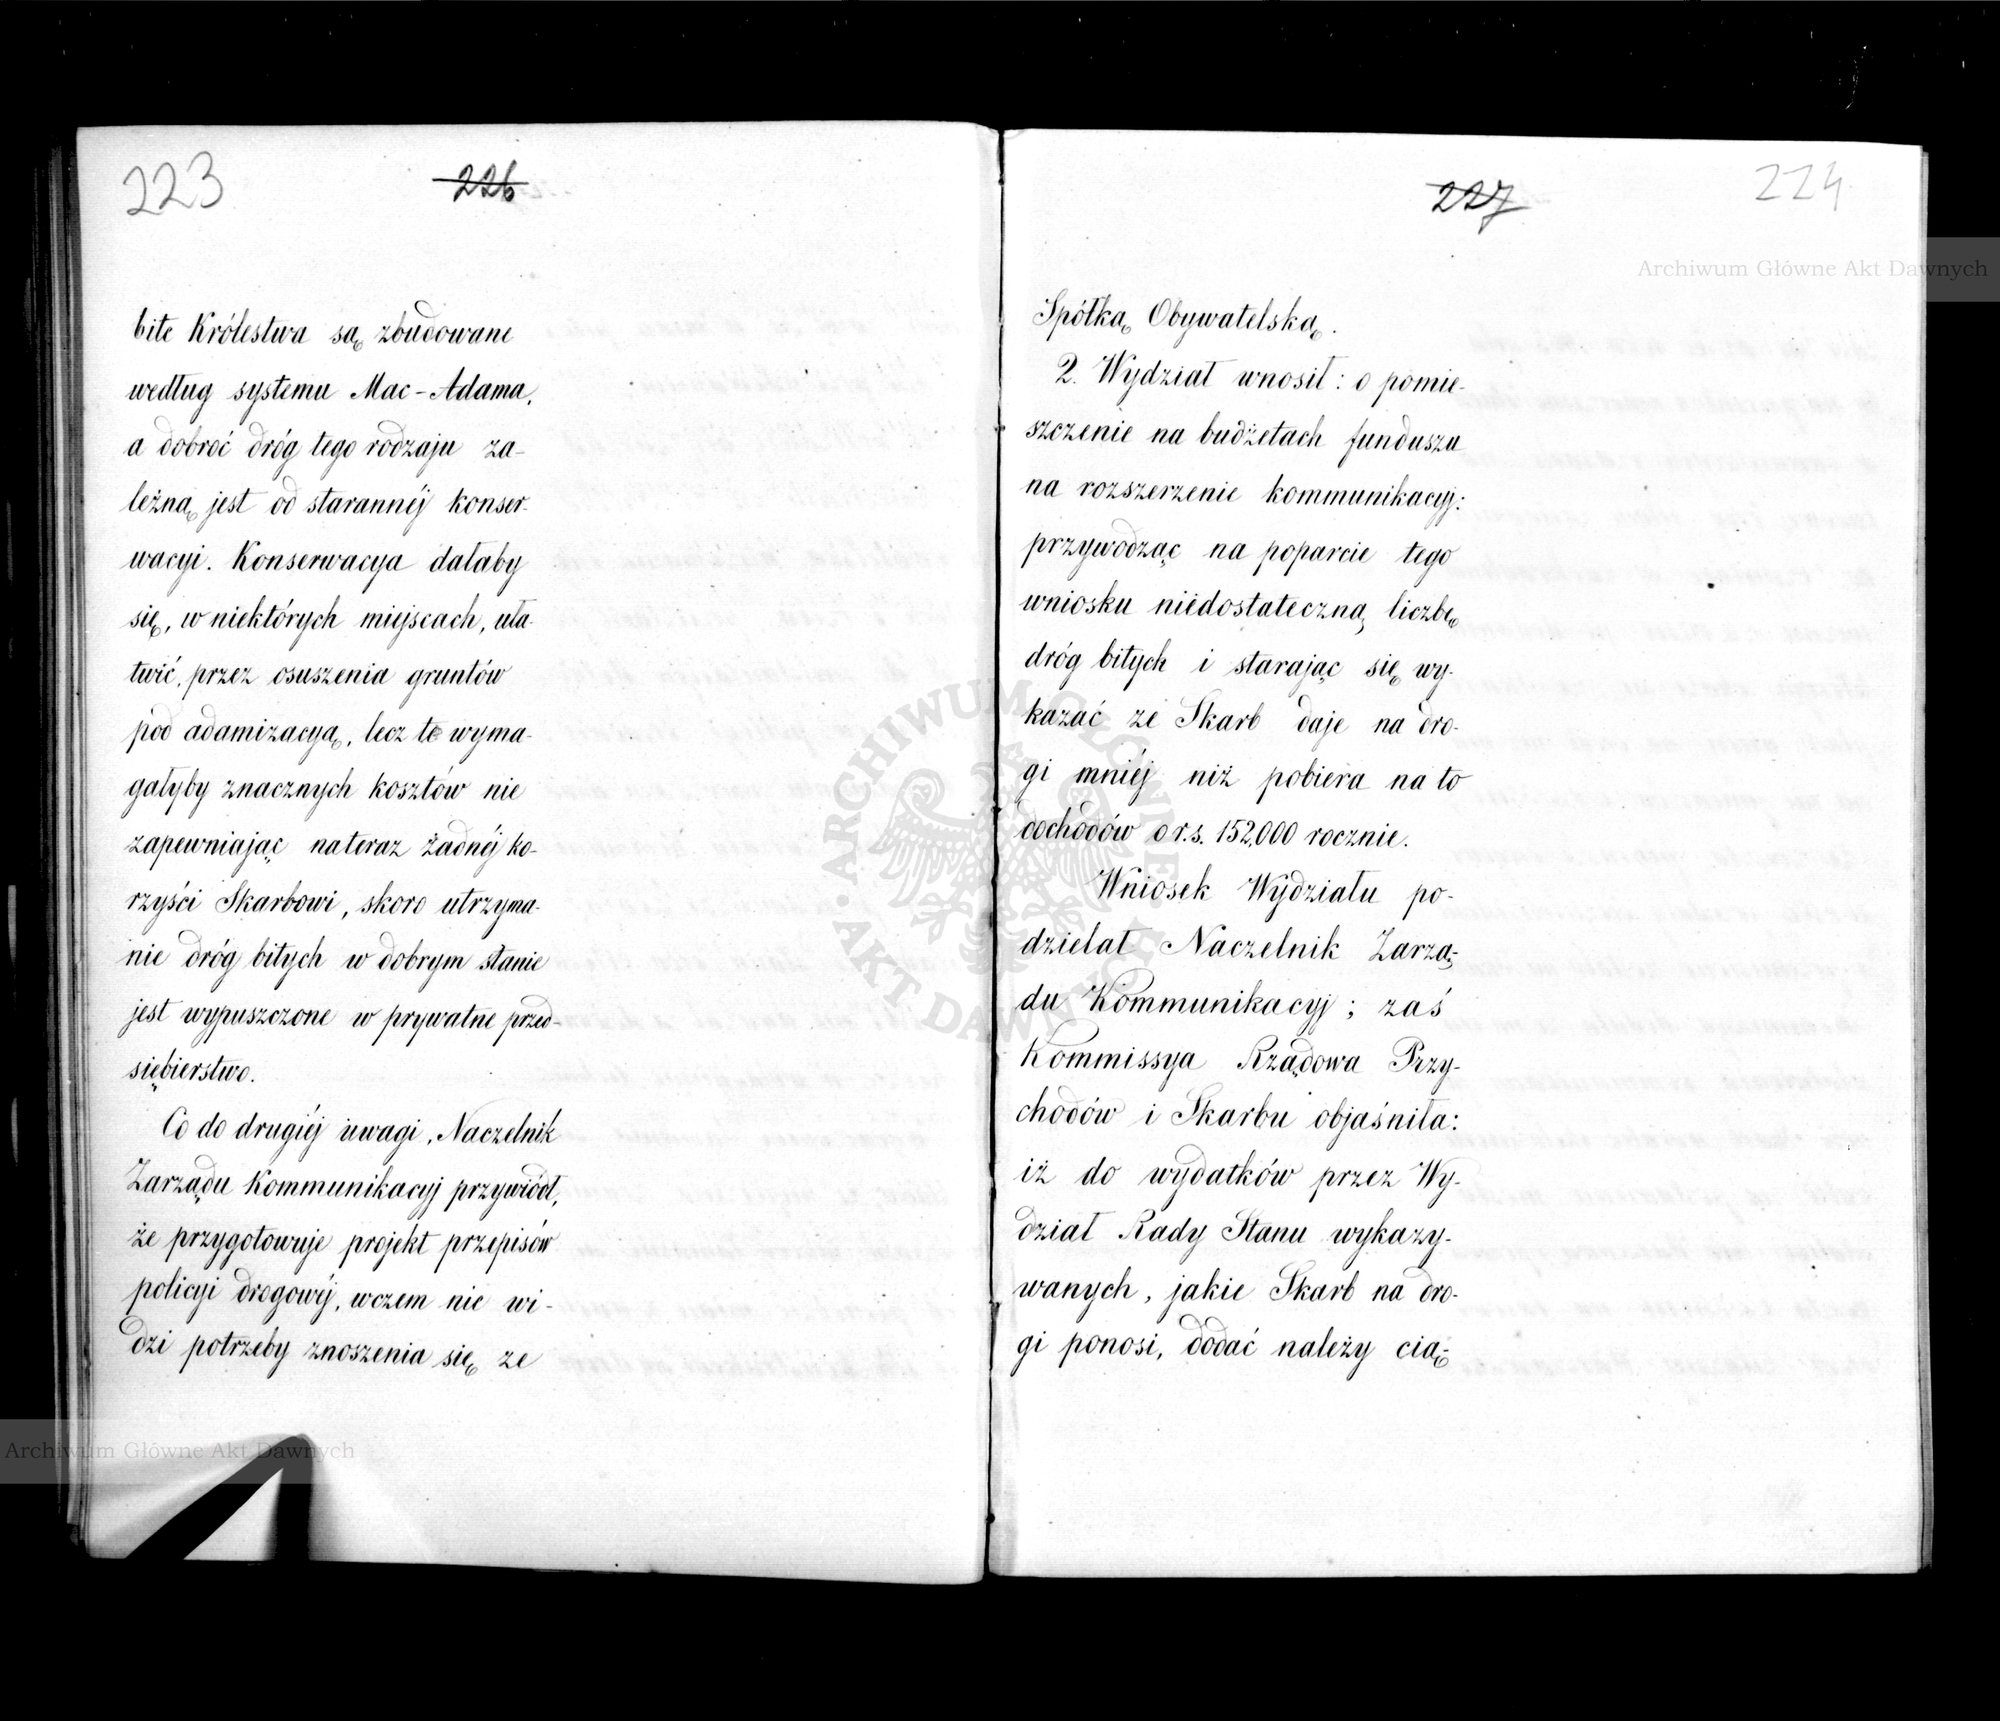 223
226
bite Królestwa są zbudowane
według systemu Mac-Adama,
a dobroć dróg tego rodzaju za-
leżną jest od starannéj konser-
wacyi. Konserwacya dałaby
się, w niektórych miejscach, uła-
twić, przez osuszenia gruntów
pod adamizacyą, lecz te wyma-
gałyby znacznych kosztów nie
zapewniając nateraz żadnéj ko-
rzyści Skarbowi, skoro utrzyma-
nie dróg bitych w dobrym stanie
jest wypuszczone w prywatne przed-
siębierstwo.
Co do drugiéj uwagi, Naczelnik
Zarządu Kommunikacyj przywiódł,
że przygotowuje projekt przepisów
policyi drogowéj, wczem nie wi-
dzi potrzeby znoszenia się ze
227
224
Spółką Obywatelską.
2. Wydział wnosił: o pomie-
szczenie na budżetach funduszu
na rozszerzenie kommunikacyj:
przywodząc na poparcie tego
wniosku niedostateczną liczbę
dróg bitych i starając się wy-
kazać że Skarb daje na dro-
gi mniéj niż pobiera na to
dochodów o r.s. 152,000 rocznie.
Wniosek Wydziału po-
dzielał Naczelnik Zarzą-
du Kommunikacyj; zaś
Kommissya Rządowa Przy-
chodów i Skarbu objaśniła:
iż do wydatków przez Wy-
dział Rady Stanu wykazy-
wanych, jakie Skarb na dro-
gi ponosi, dodać należy cią-
Archiwum Główne Akt Dawnych
ARCHIWUM GŁÓWNE AKT DAWNYCH
Archiwum Główne Akt Dawnych